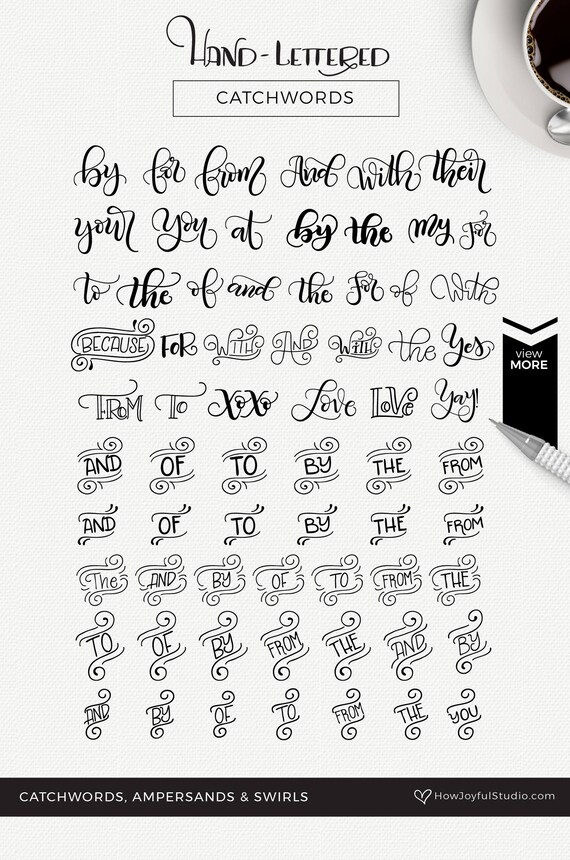 HAND-LETTERED
CATCHWORDS
by for from And with their
your You at by the my for
to the of and the For of With
BECAUSE FOR WITH AND WITH the Yes
FROM TO XOXO Love LOVE Yay!
AND OF TO BY THE FROM
AND OF TO BY THE FROM
The AND BY OF TO FROM THE
TO OF BY FROM THE AND BY
AND BY OF TO FROM THE YOU
view
MORE
CATCHWORDS, AMPERSANDS & SWIRLS
HowJoyfulStudio.com